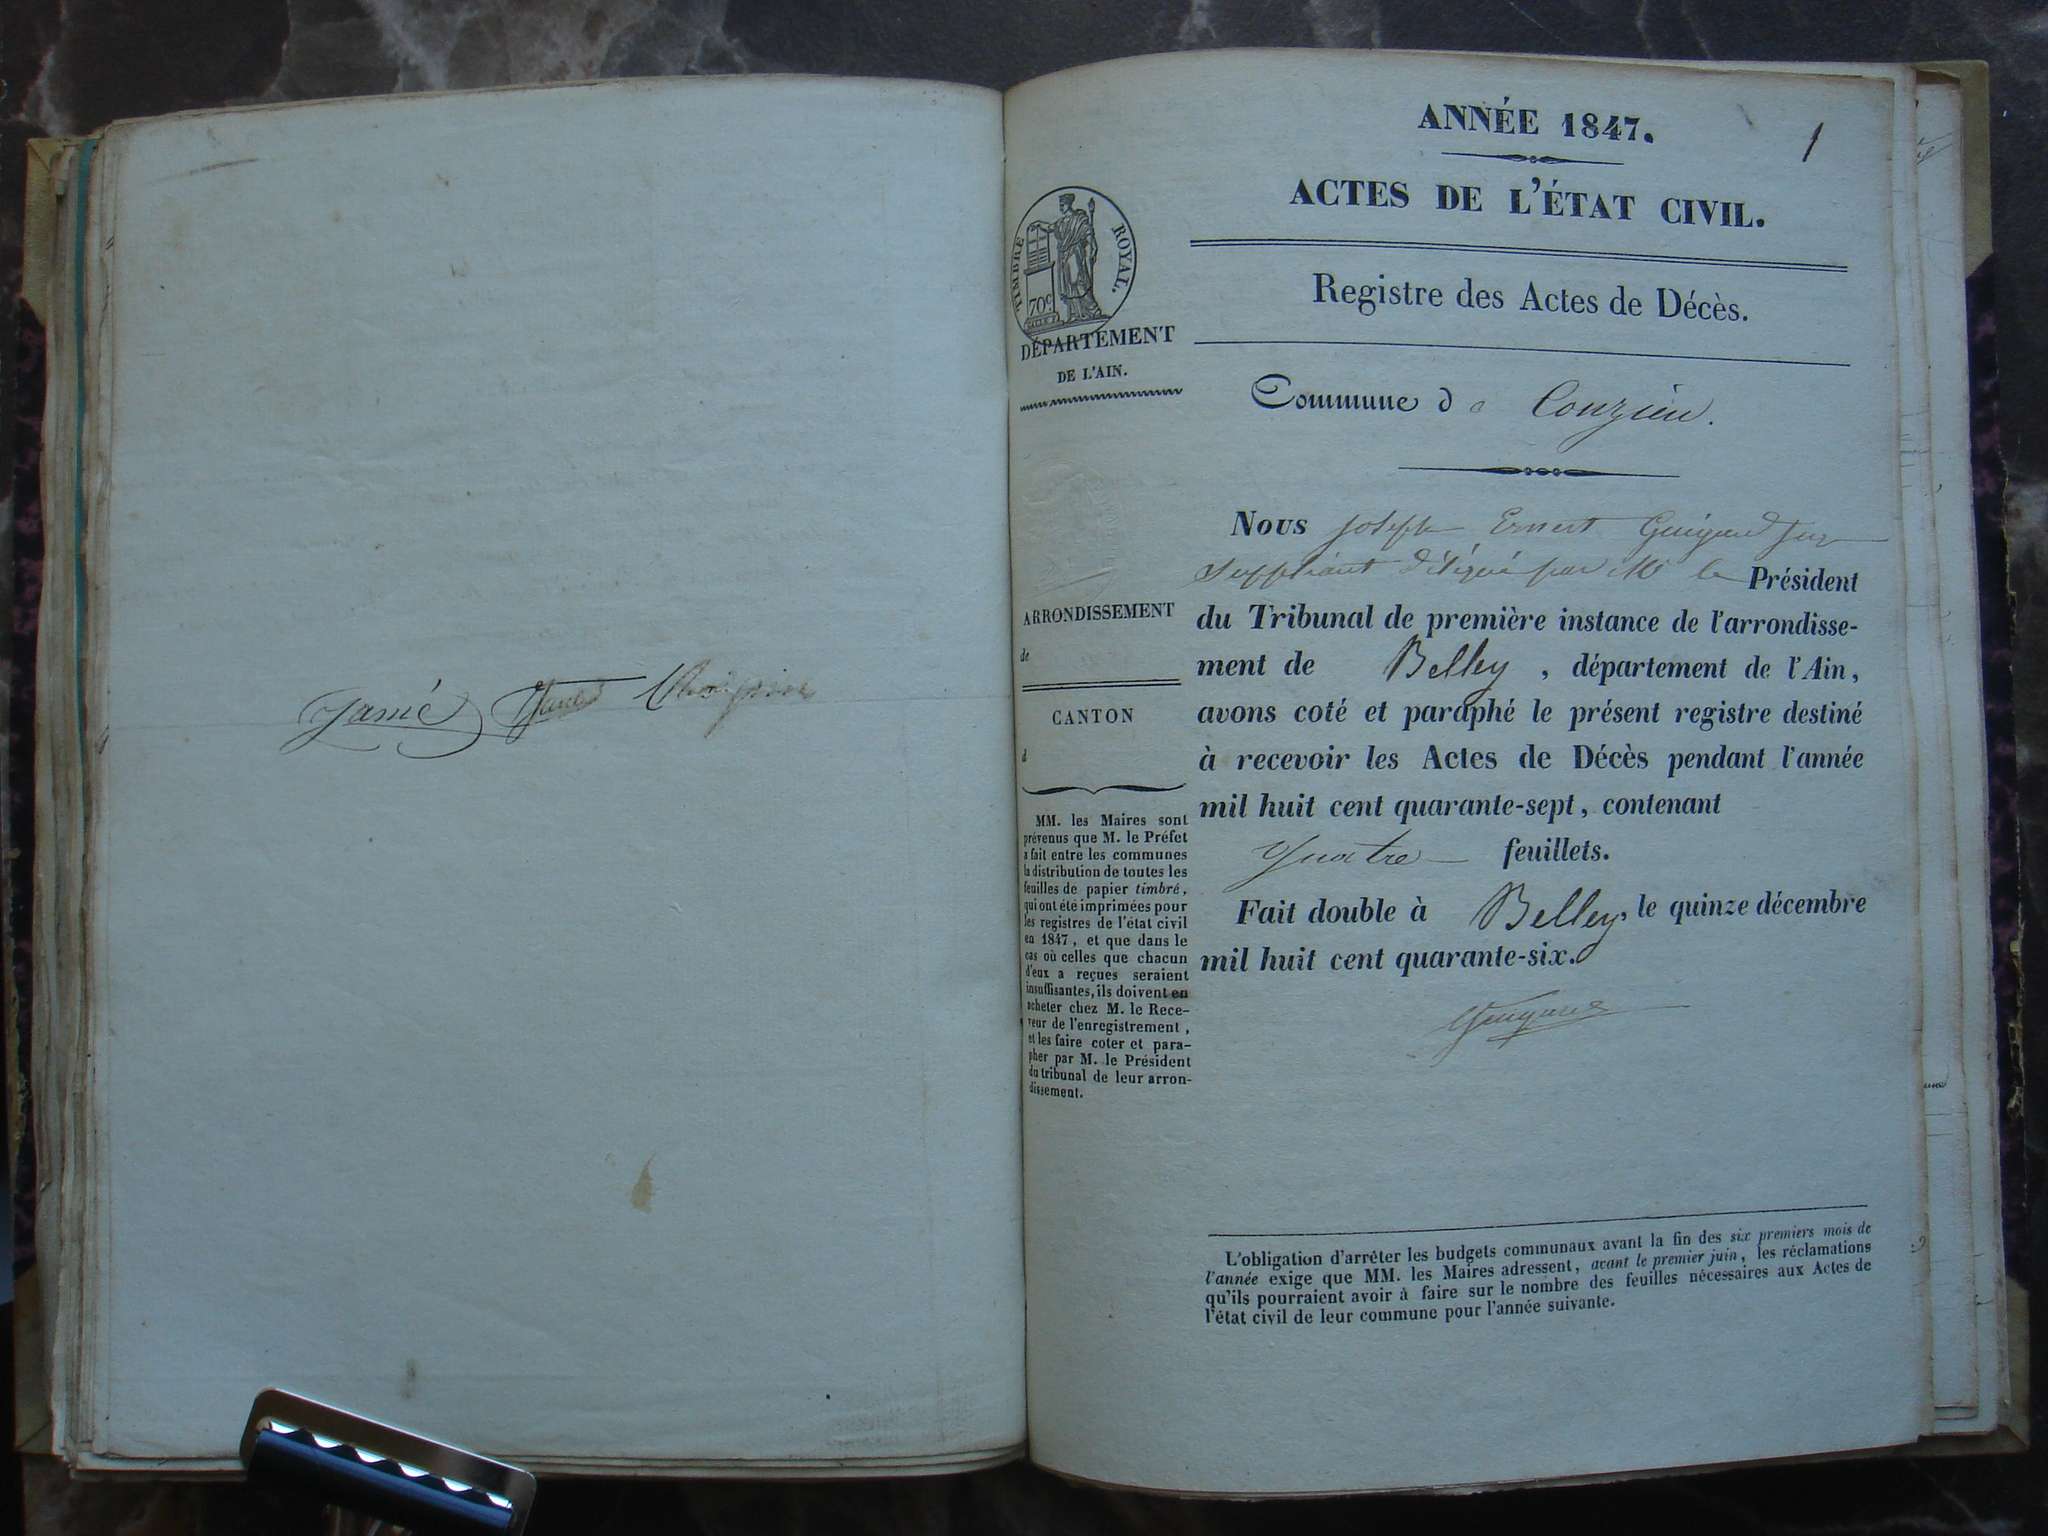 Jamé
ANNÉE 1847.
1
ACTES DE L'ÉTAT CIVIL.
TIMBRE ROYAL.
70c.
DÉPARTEMENT
DE L'AIN.
Registre des Actes de Décès.
Commune de Conzieu.
ARRONDISSEMENT
de
CANTON
d
MM. les Maires sont
prévenus que M. le Préfet
a fait entre les communes
la distribution de toutes les
feuilles de papier timbré,
qui ont été imprimées pour
les registres de l'état civil
en 1847, et que dans le
cas où celles que chacun
d'eux a reçues seraient
insuffisantes, ils doivent en
acheter chez M. le Rece-
veur de l'enregistrement,
et les faire coter et para-
pher par M. le Président
du tribunal de leur arron-
dissement.
Nous Joseph Ernest Guigard juge
suppléant délégué par Mr le Président
du Tribunal de première instance de l'arrondisse-
ment de Belley, département de l'Ain,
avons coté et paraphé le présent registre destiné
à recevoir les Actes de Décès pendant l'année
mil huit cent quarante-sept, contenant
quatre feuillets.
Fait double à Belley, le quinze décembre
mil huit cent quarante-six.
L'obligation d'arrêter les budgets communaux avant la fin des six premiers mois de
l'année exige que MM. les Maires adressent, avant le premier juin, les réclamations
qu'ils pourraient avoir à faire sur le nombre des feuilles nécessaires aux Actes de
l'état civil de leur commune pour l'année suivante.